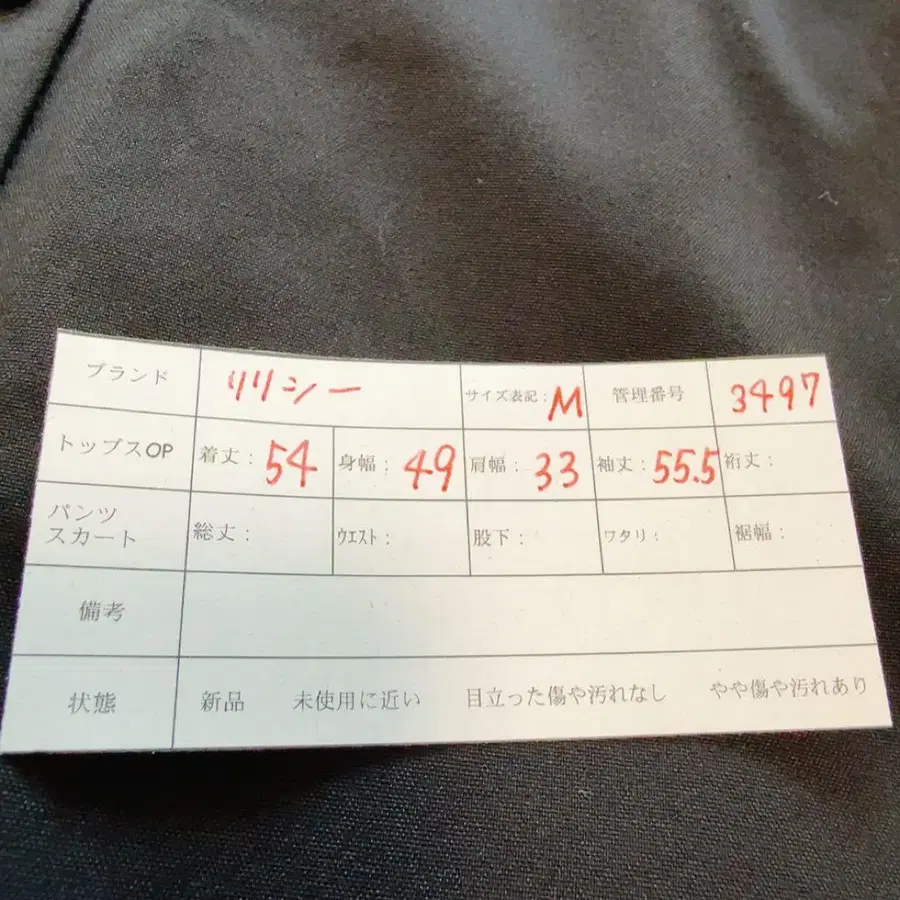 ブランド リリシー サイズ表記: M 管理番号 3497
トップスOP 着丈: 54 身幅: 49 肩幅: 33 袖丈: 55.5 裄丈:
パンツ
スカート 総丈: ウエスト: 股下: ワタリ: 裾幅:
備考
状態 新品 未使用に近い 目立った傷や汚れなし やや傷や汚れあり